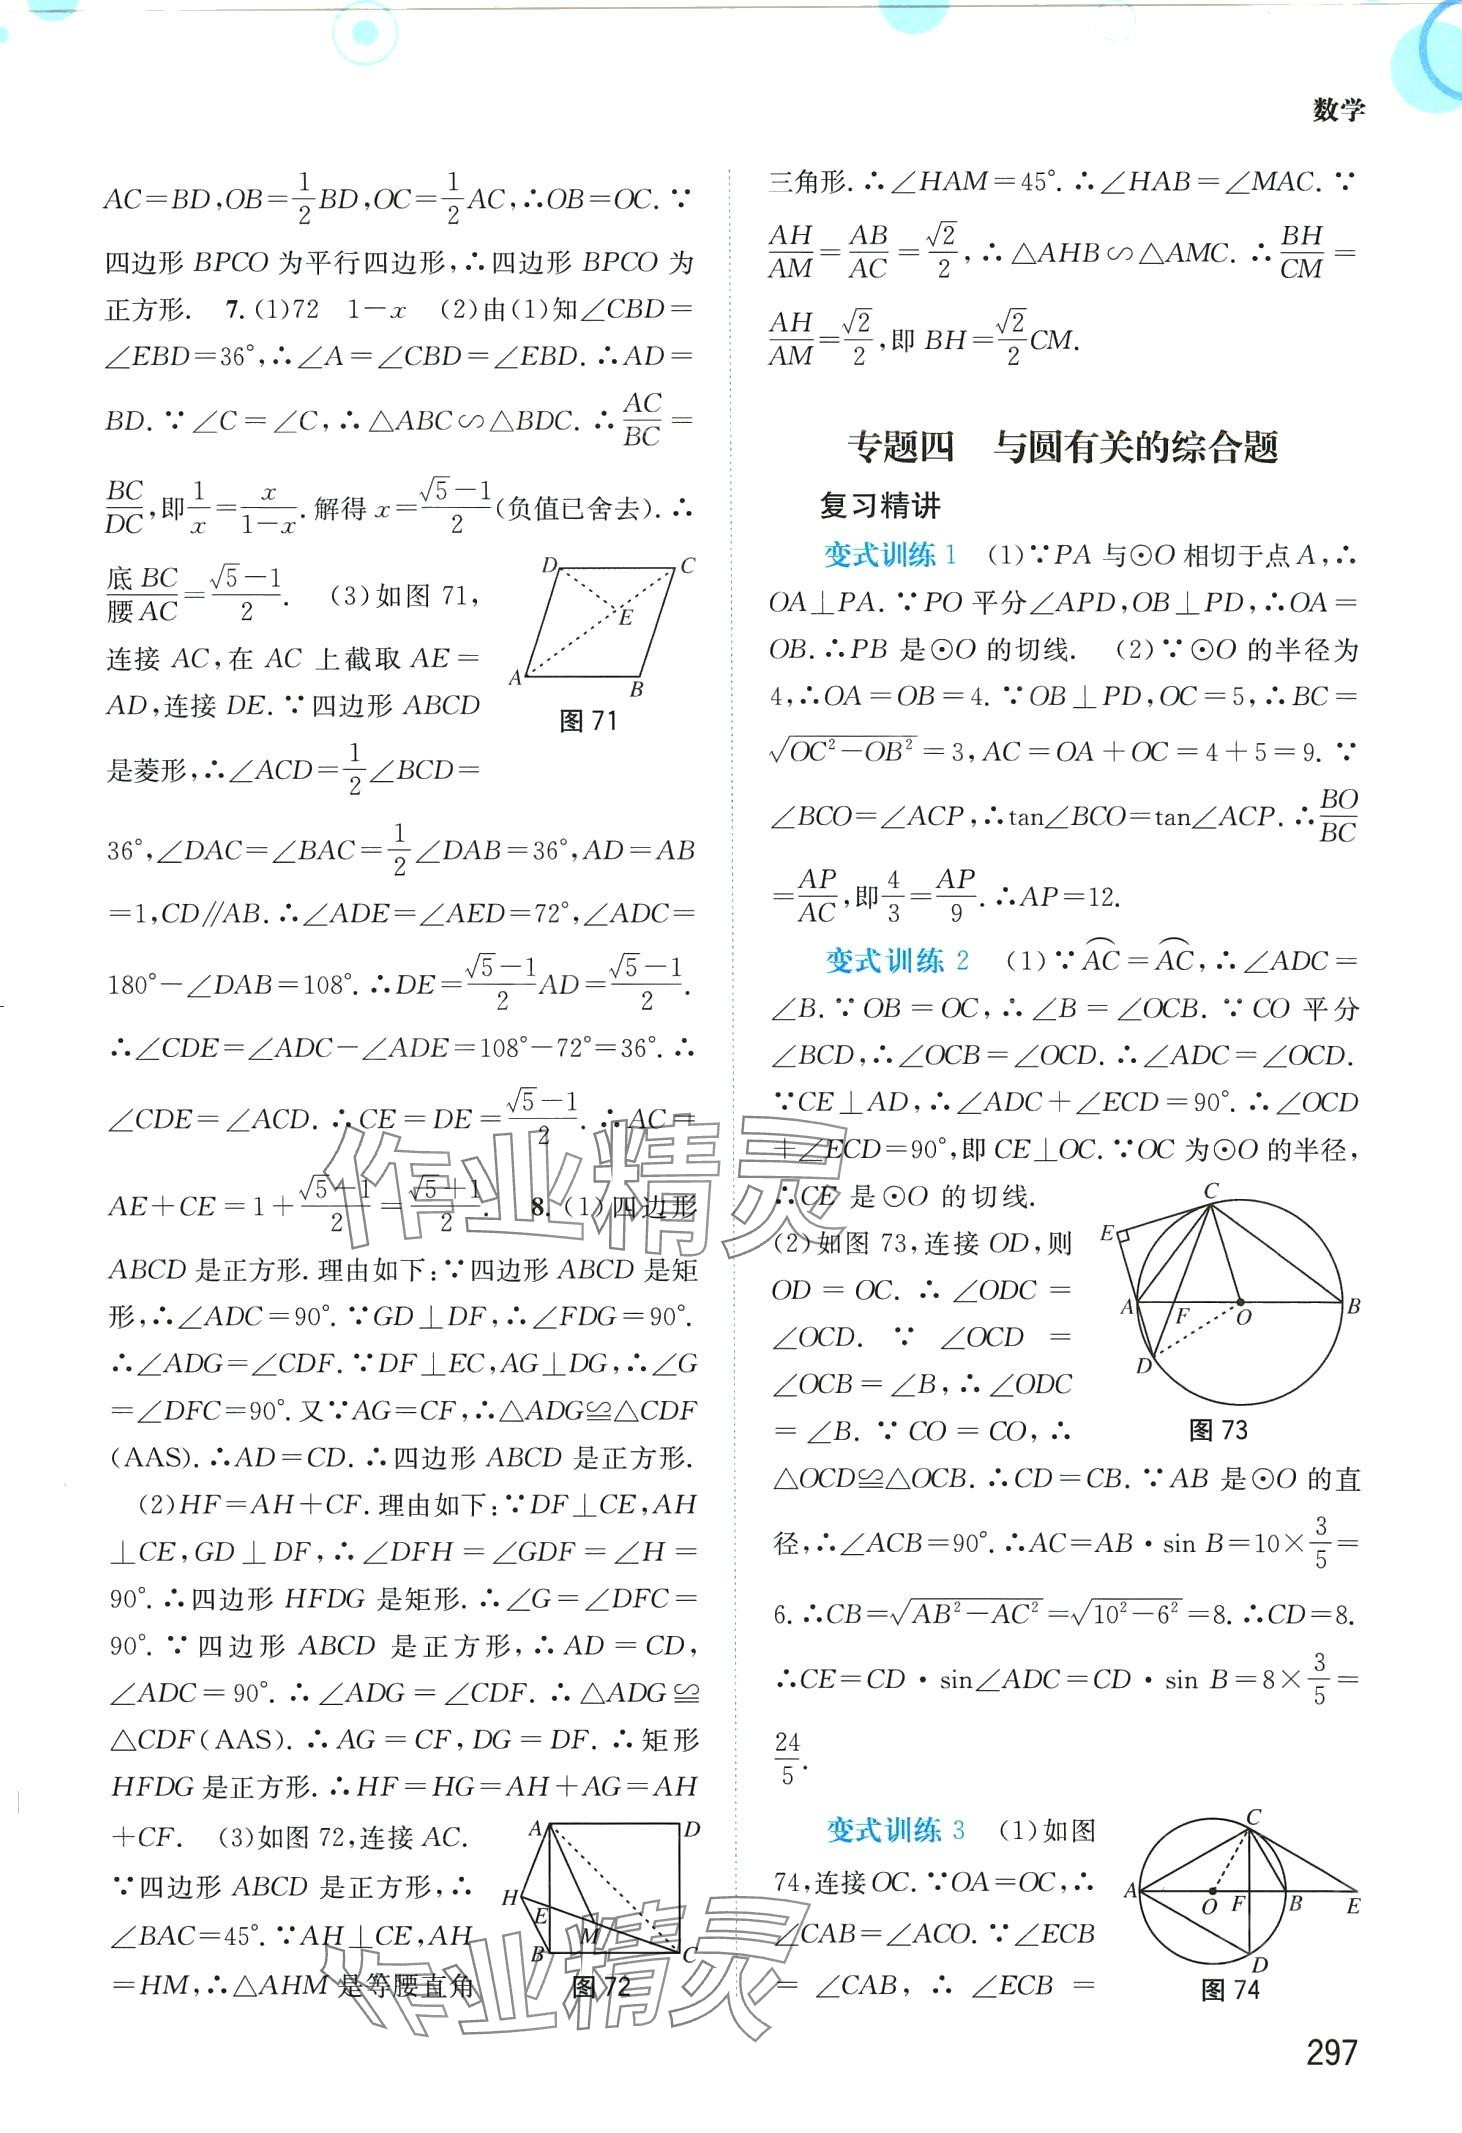 数学
AC=BD,OB=1/2BD,OC=1/2AC,∴OB=OC.∵
四边形 BPCO 为平行四边形,∴四边形 BPCO 为
正方形. 7.(1)72 1-x (2)由(1)知∠CBD=
∠EBD=36°,∴∠A=∠CBD=∠EBD.∴AD=
BD.∵∠C=∠C,∴△ABC∽△BDC.∴AC/BC=
BC/DC,即1/x=x/(1-x).解得 x=(√5-1)/2(负值已舍去).∴
底BC/腰AC=(√5-1)/2. (3)如图 71,
连接 AC,在 AC 上截取 AE=
AD,连接 DE.∵四边形 ABCD
是菱形,∴∠ACD=1/2∠BCD=
D C
E
A B
图 71
36°,∠DAC=∠BAC=1/2∠DAB=36°,AD=AB
=1,CD∥AB.∴∠ADE=∠AED=72°,∠ADC=
180°-∠DAB=108°.∴DE=(√5-1)/2AD=(√5-1)/2.
∴∠CDE=∠ADC-∠ADE=108°-72°=36°.∴
∠CDE=∠ACD.∴CE=DE=(√5-1)/2.∴AC=
AE+CE=1+(√5-1)/2=(√5+1)/2. 8.(1)四边形
ABCD 是正方形.理由如下:∵四边形 ABCD 是矩
形,∴∠ADC=90°.∵GD⊥DF,∴∠FDG=90°.
∴∠ADG=∠CDF.∵DF⊥EC,AG⊥DG,∴∠G
=∠DFC=90°.又∵AG=CF,∴△ADG≌△CDF
(AAS).∴AD=CD.∴四边形 ABCD 是正方形.
(2)HF=AH+CF.理由如下:∵DF⊥CE,AH
⊥CE,GD⊥DF,∴∠DFH=∠GDF=∠H=
90°.∴四边形 HFDG 是矩形.∴∠G=∠DFC=
90°.∵四边形 ABCD 是正方形,∴AD=CD,
∠ADC=90°.∴∠ADG=∠CDF.∴△ADG≌
△CDF(AAS).∴AG=CF,DG=DF.∴矩形
HFDG 是正方形.∴HF=HG=AH+AG=AH
+CF. (3)如图 72,连接 AC.
∵四边形 ABCD 是正方形,∴
∠BAC=45°.∵AH⊥CE,AH
=HM,∴△AHM 是等腰直角
A D
H
E
M
B C
图 72
三角形.∴∠HAM=45°.∴∠HAB=∠MAC.∵
AH/AM=AB/AC=√2/2,∴△AHB∽△AMC.∴BH/CM=
AH/AM=√2/2,即 BH=√2/2CM.
专题四 与圆有关的综合题
复习精讲
变式训练 1 (1)∵PA 与⊙O 相切于点 A,∴
OA⊥PA.∵PO 平分∠APD,OB⊥PD,∴OA=
OB.∴PB 是⊙O 的切线. (2)∵⊙O 的半径为
4,∴OA=OB=4.∵OB⊥PD,OC=5,∴BC=
√(OC²-OB²)=3,AC=OA+OC=4+5=9.∵
∠BCO=∠ACP,∴tan∠BCO=tan∠ACP.∴BO/BC
=AP/AC,即4/3=AP/9.∴AP=12.
变式训练 2 (1)∵⌒AC=⌒AC,∴∠ADC=
∠B.∵OB=OC,∴∠B=∠OCB.∵CO 平分
∠BCD,∴∠OCB=∠OCD.∴∠ADC=∠OCD.
∵CE⊥AD,∴∠ADC+∠ECD=90°.∴∠OCD
+∠ECD=90°,即 CE⊥OC.∵OC 为⊙O 的半径,
∴CE 是⊙O 的切线.
(2)如图 73,连接 OD,则
OD=OC.∴∠ODC=
∠OCD.∵∠OCD=
∠OCB=∠B,∴∠ODC
=∠B.∵CO=CO,∴
C
E
A F O B
D
图 73
△OCD≌△OCB.∴CD=CB.∵AB 是⊙O 的直
径,∴∠ACB=90°.∴AC=AB·sin B=10×3/5=
6.∴CB=√(AB²-AC²)=√(10²-6²)=8.∴CD=8.
∴CE=CD·sin∠ADC=CD·sin B=8×3/5=
24/5.
变式训练 3 (1)如图
74,连接 OC.∵OA=OC,∴
∠CAB=∠ACO.∵∠ECB
=∠CAB,∴∠ECB=
C
A O F B E
D
图 74
297
作业精灵
作业精灵